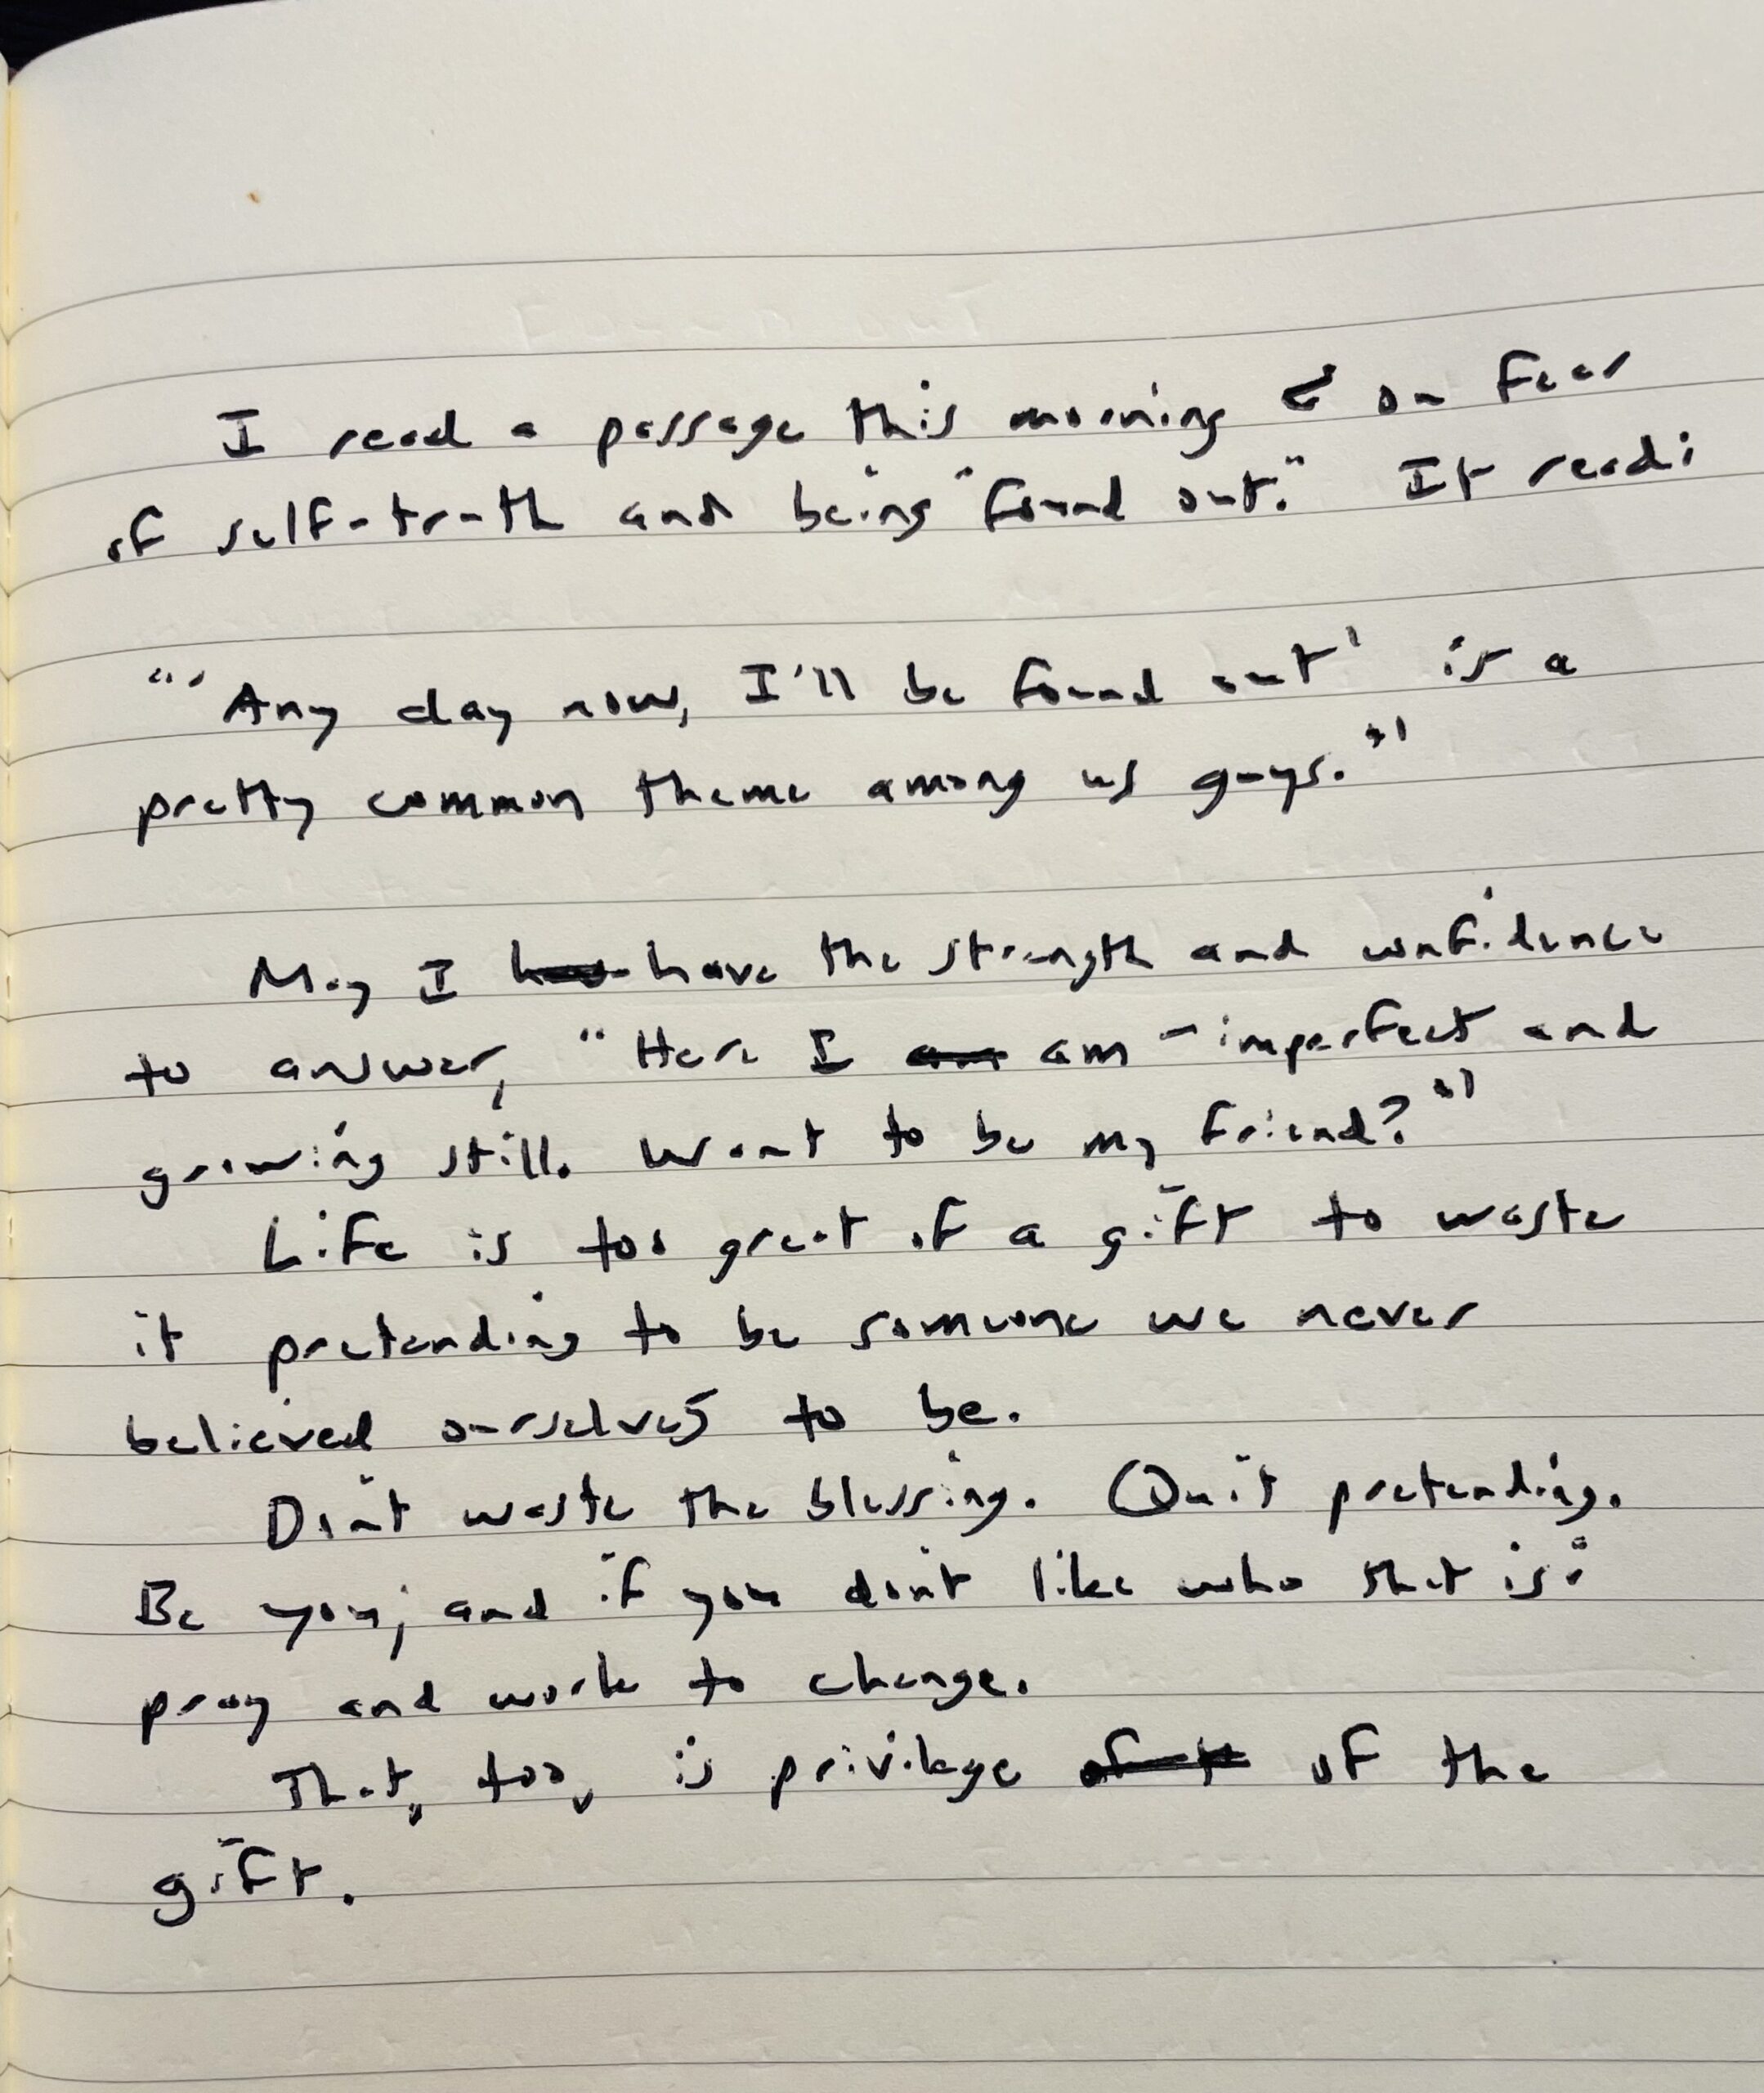 I read a passage this morning on fear
of self-truth and being "found out." It read:
"'Any day now, I'll be found out' is a
pretty common theme among us guys."
May I have the strength and confidence
to answer, "Here I am - imperfect and
growing still. Want to be my friend?"
Life is too great of a gift to waste
it pretending to be someone we never
believed ourselves to be.
Don't waste the blessing. Quit pretending.
Be you; and if you don't like who that is:
pray and work to change.
That, too, is privilege of the
gift.